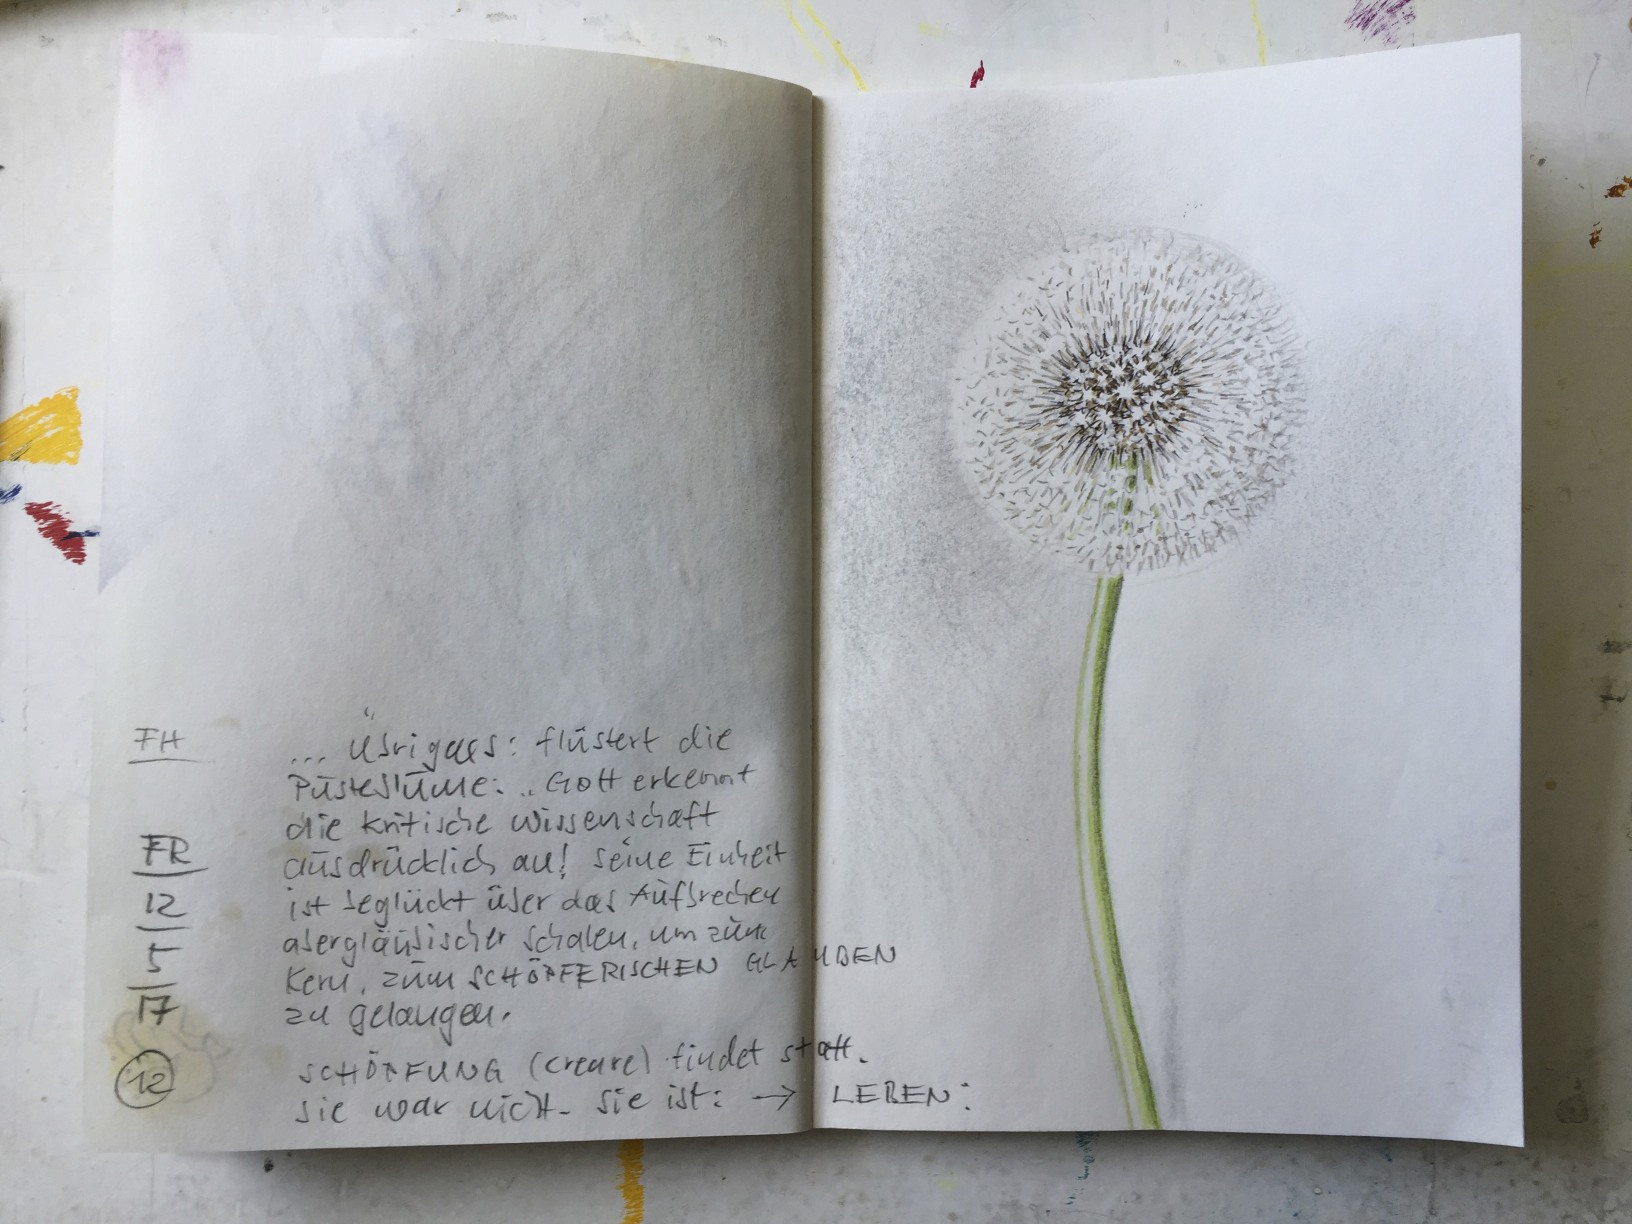 FH
FR
12
5
17
12
... übrigens: flüstert die
Pusteblume: „Gott erkennt
die kritische Wissenschaft
ausdrücklich an! Seine Einheit
ist beglückt über das Aufbrechen
abergläubischer Schalen, um zum
Kern, zum SCHÖPFERISCHEN GLAUBEN
zu gelangen.
SCHÖPFUNG (creare) findet statt.
Sie war nicht - Sie ist: → LEBEN: